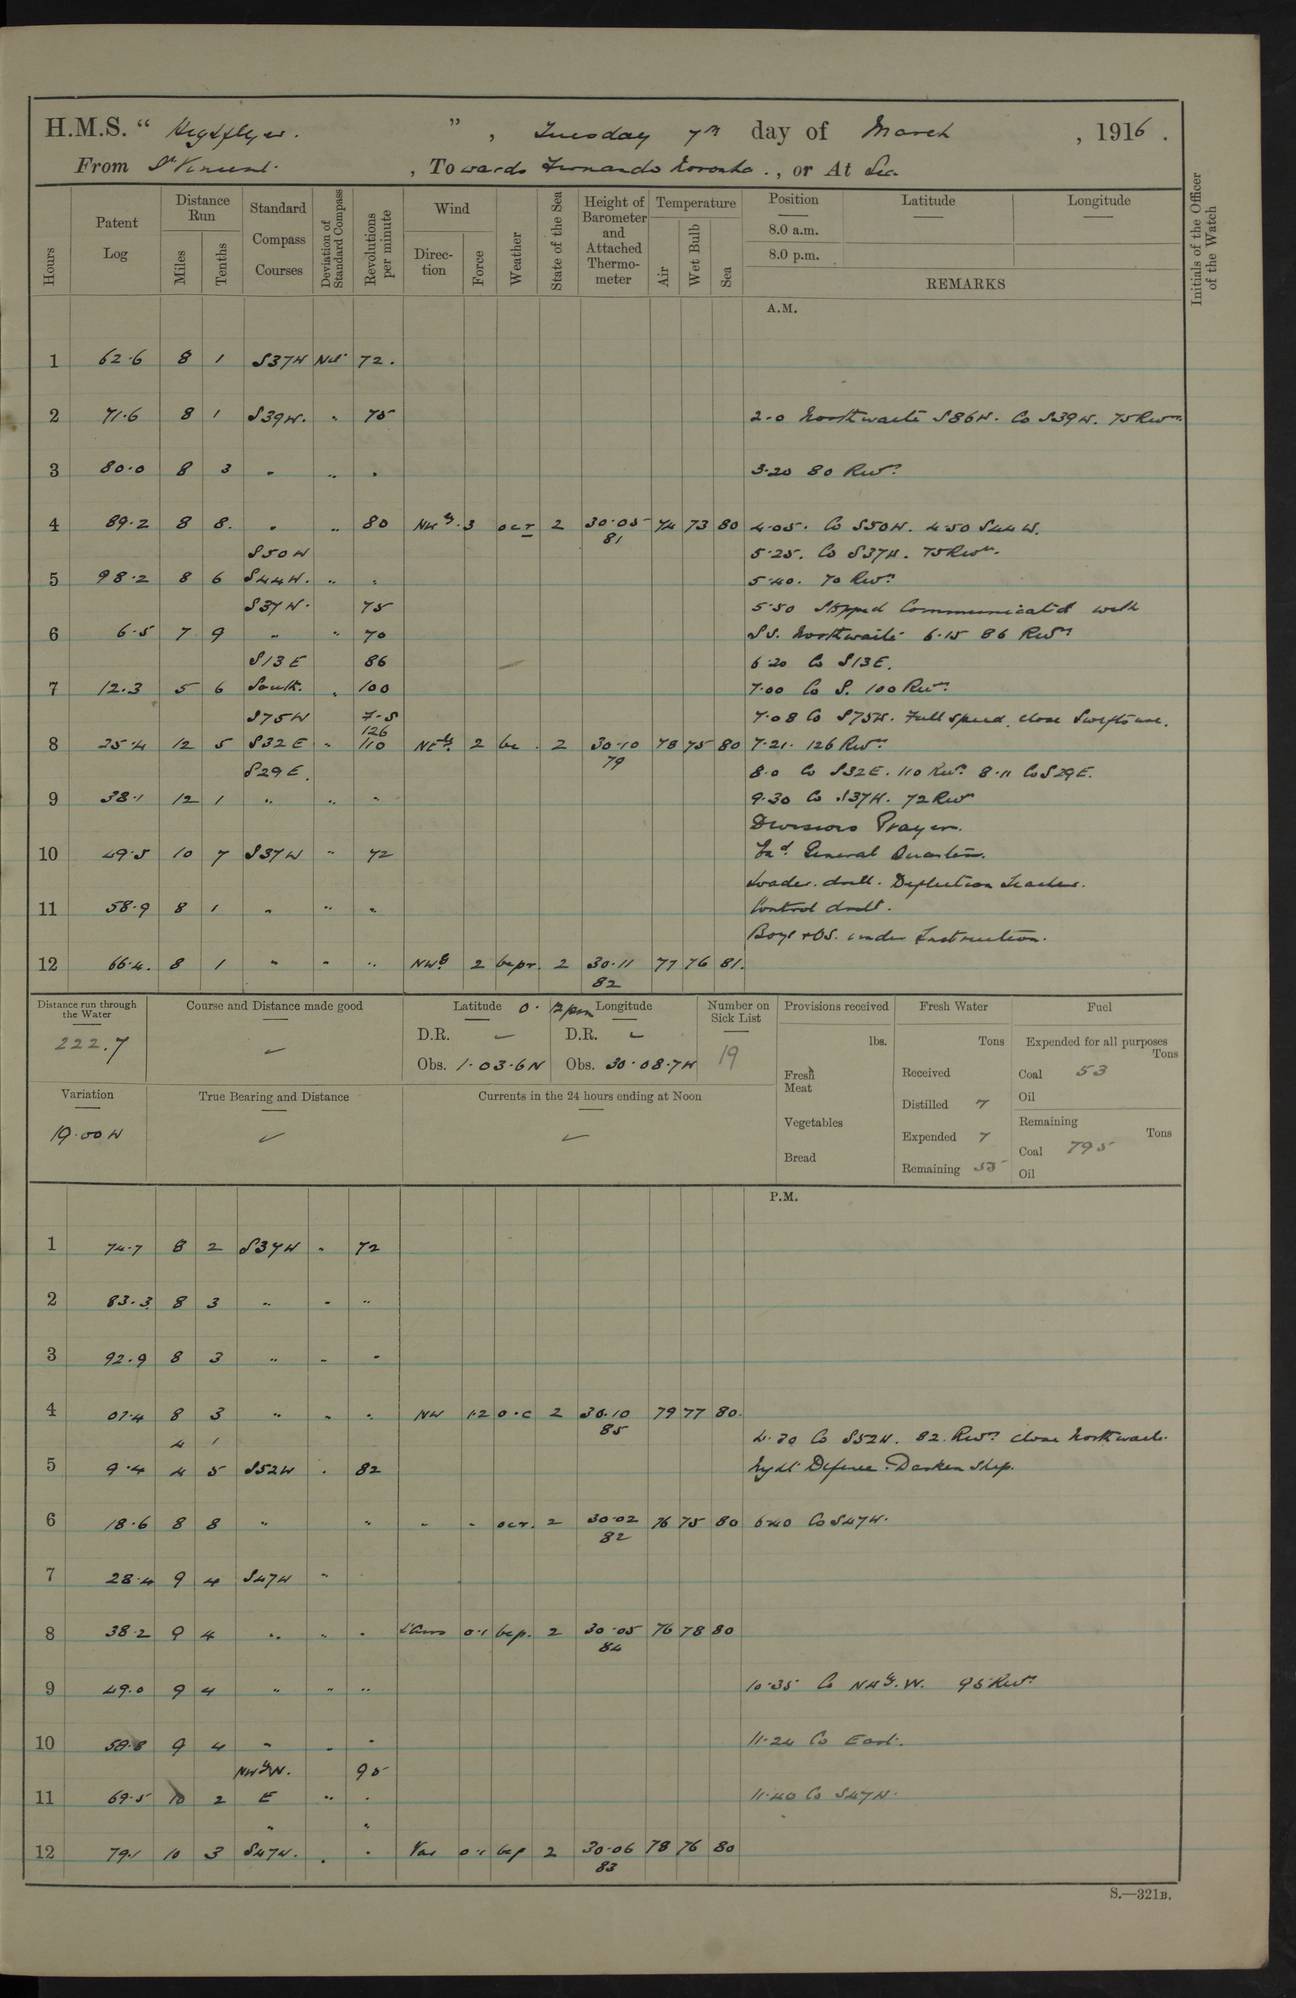 H.M.S. “ Highflyer. ” , Tuesday 7th day of March , 1916 .
From St Vincent. , Towards Fernando Noronha . , or At Sea
Hours Patent Log Distance Run Miles Tenths Standard Compass Courses Deviation of Standard Compass Revolutions per minute Wind Direction Force Weather State of the Sea Height of Barometer and Attached Thermometer Temperature Air Wet Bulb Sea Position Latitude Longitude
8.0 a.m.
8.0 p.m.
REMARKS
Initials of the Officer of the Watch
A.M.
1 62.6 8 1 S37W Nil 72.
2 71.6 8 1 S39W. " 75 2.0 Northwaite S86W. Co S39W. 75 Revns.
3 80.0 8 3 " " " 3.20 80 Revns
4 89.2 8 8. " " 80 NWly. 3 ocr 2 30.05 74 73 80 4.05. Co S50W. 4.50 S44W.
81
S50W 5.25. Co S37W. 75 Revns.
5 98.2 8 6 S44W. " " 5.40. 70 Revns
S37W. 75 5.50 Stopped Communicated with
6 6.5 7 9 " " 70 SS. Northwaite 6.15 86 Revns
S13E 86 6.20 Co S13E.
7 12.3 5 6 South. " 100 7.00 Co S. 100 Revns.
S75W F.S 7.08 Co S75W. Full speed, close Swiftsure.
126
8 25.4 12 5 S32E " 110 NEly. 2 bc . 2 30.10 78 75 80 7.21. 126 Revns
79
S29E. 8.0 Co S32E. 110 Revns. 8.11 Co S29E.
9 38.1 12 1 " " " 9.30 Co S37W. 72 Revns
Divisions Prayers.
10 49.5 10 7 S37W " 72 Exd. General Quarters.
Loader. drill. Deflection Teacher.
11 58.9 8 1 " " " Control drill.
Boys & OS. under Instruction.
12 66.4. 8 1 " " " NWly 2 bcpr. 2 30.11 77 76 81.
82
Distance run through the Water Course and Distance made good Latitude 0. 12pm Longitude Number on Sick List Provisions received Fresh Water Fuel
222.7 D.R. D.R. 19 lbs. Tons Expended for all purposes Tons
Obs. 1.03.6N Obs. 30.08.7W Fresh Meat Received Coal 53
Oil
Variation True Bearing and Distance Currents in the 24 hours ending at Noon Distilled 7
19.00W Vegetables Expended 7 Remaining Tons
Bread Remaining 55 Coal 795
Oil
P.M.
1 74.7 8 2 S37W " 72
2 83.3. 8 3 " " "
3 92.9 8 3 " " "
4 01.4 8 3 " " " NW 1.2 o.c 2 30.10 79 77 80.
85
4 1 4.30 Co S52W. 82. Revns close Northwaite.
5 9.4 4 5 S52W . 82 Night Defence. Darken ship.
6 18.6 8 8 " " " " ocr. 2 30.02 76 75 80 6.40 Co S47W.
82
7 28.4 9 4 S47W "
8 38.2 9 4 " " " L'Airs 0.1 bcp. 2 30.05 76 78 80
84
9 49.0 9 4 " " " 10.35 Co NWly.W. 95 Revns
10 58.8 9 4 " " " 11.24 Co East.
NWlyW. 95
11 69.5 10 2 E " " 11.40 Co S47W.
" "
12 79.1 10 3 S47W. . " Var 0.1 bcp 2 30.06 78 76 80
83
S.—321B.